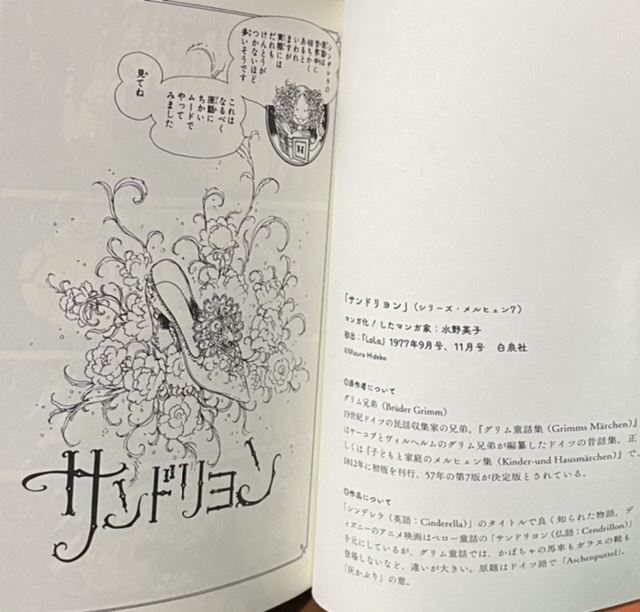 シンデレラの
原話は
世界中に
500ちかく
あると
いわれ
ますが
実際には
だれも
けんとうが
つかないほど
多いそうです
これは
なるべく
原話に
ちかい
ムードで
やって
みました
見てね
サンドリヨン
「サンドリヨン」(シリーズ・メルヒェン7)
マンガ化!したマンガ家:水野英子
初出:「LaLa」1977年9月号、11月号 白泉社
©Mizuno Hideko
◎原作者について
グリム兄弟(Brüder Grimm)
19世紀ドイツの民話収集家の兄弟。『グリム童話集(Grimms Märchen)』
はヤーコプとヴィルヘルムのグリム兄弟が編纂したドイツの昔話集。正
しくは『子どもと家庭のメルヒェン集(Kinder-und Hausmärchen)』で、
1812年に初版を刊行、57年の第7版が決定版とされている。
◎作品について
「シンデレラ(英語:Cinderella)」のタイトルで良く知られた物語。デ
ィズニーのアニメ映画はペロー童話の「サンドリヨン(仏語:Cendrillon)」
を元にしているが、グリム童話では、かぼちゃの馬車もガラスの靴も
登場しないなど、違いが大きい。原題はドイツ語で「Aschenputtel」。
「灰かぶり」の意。